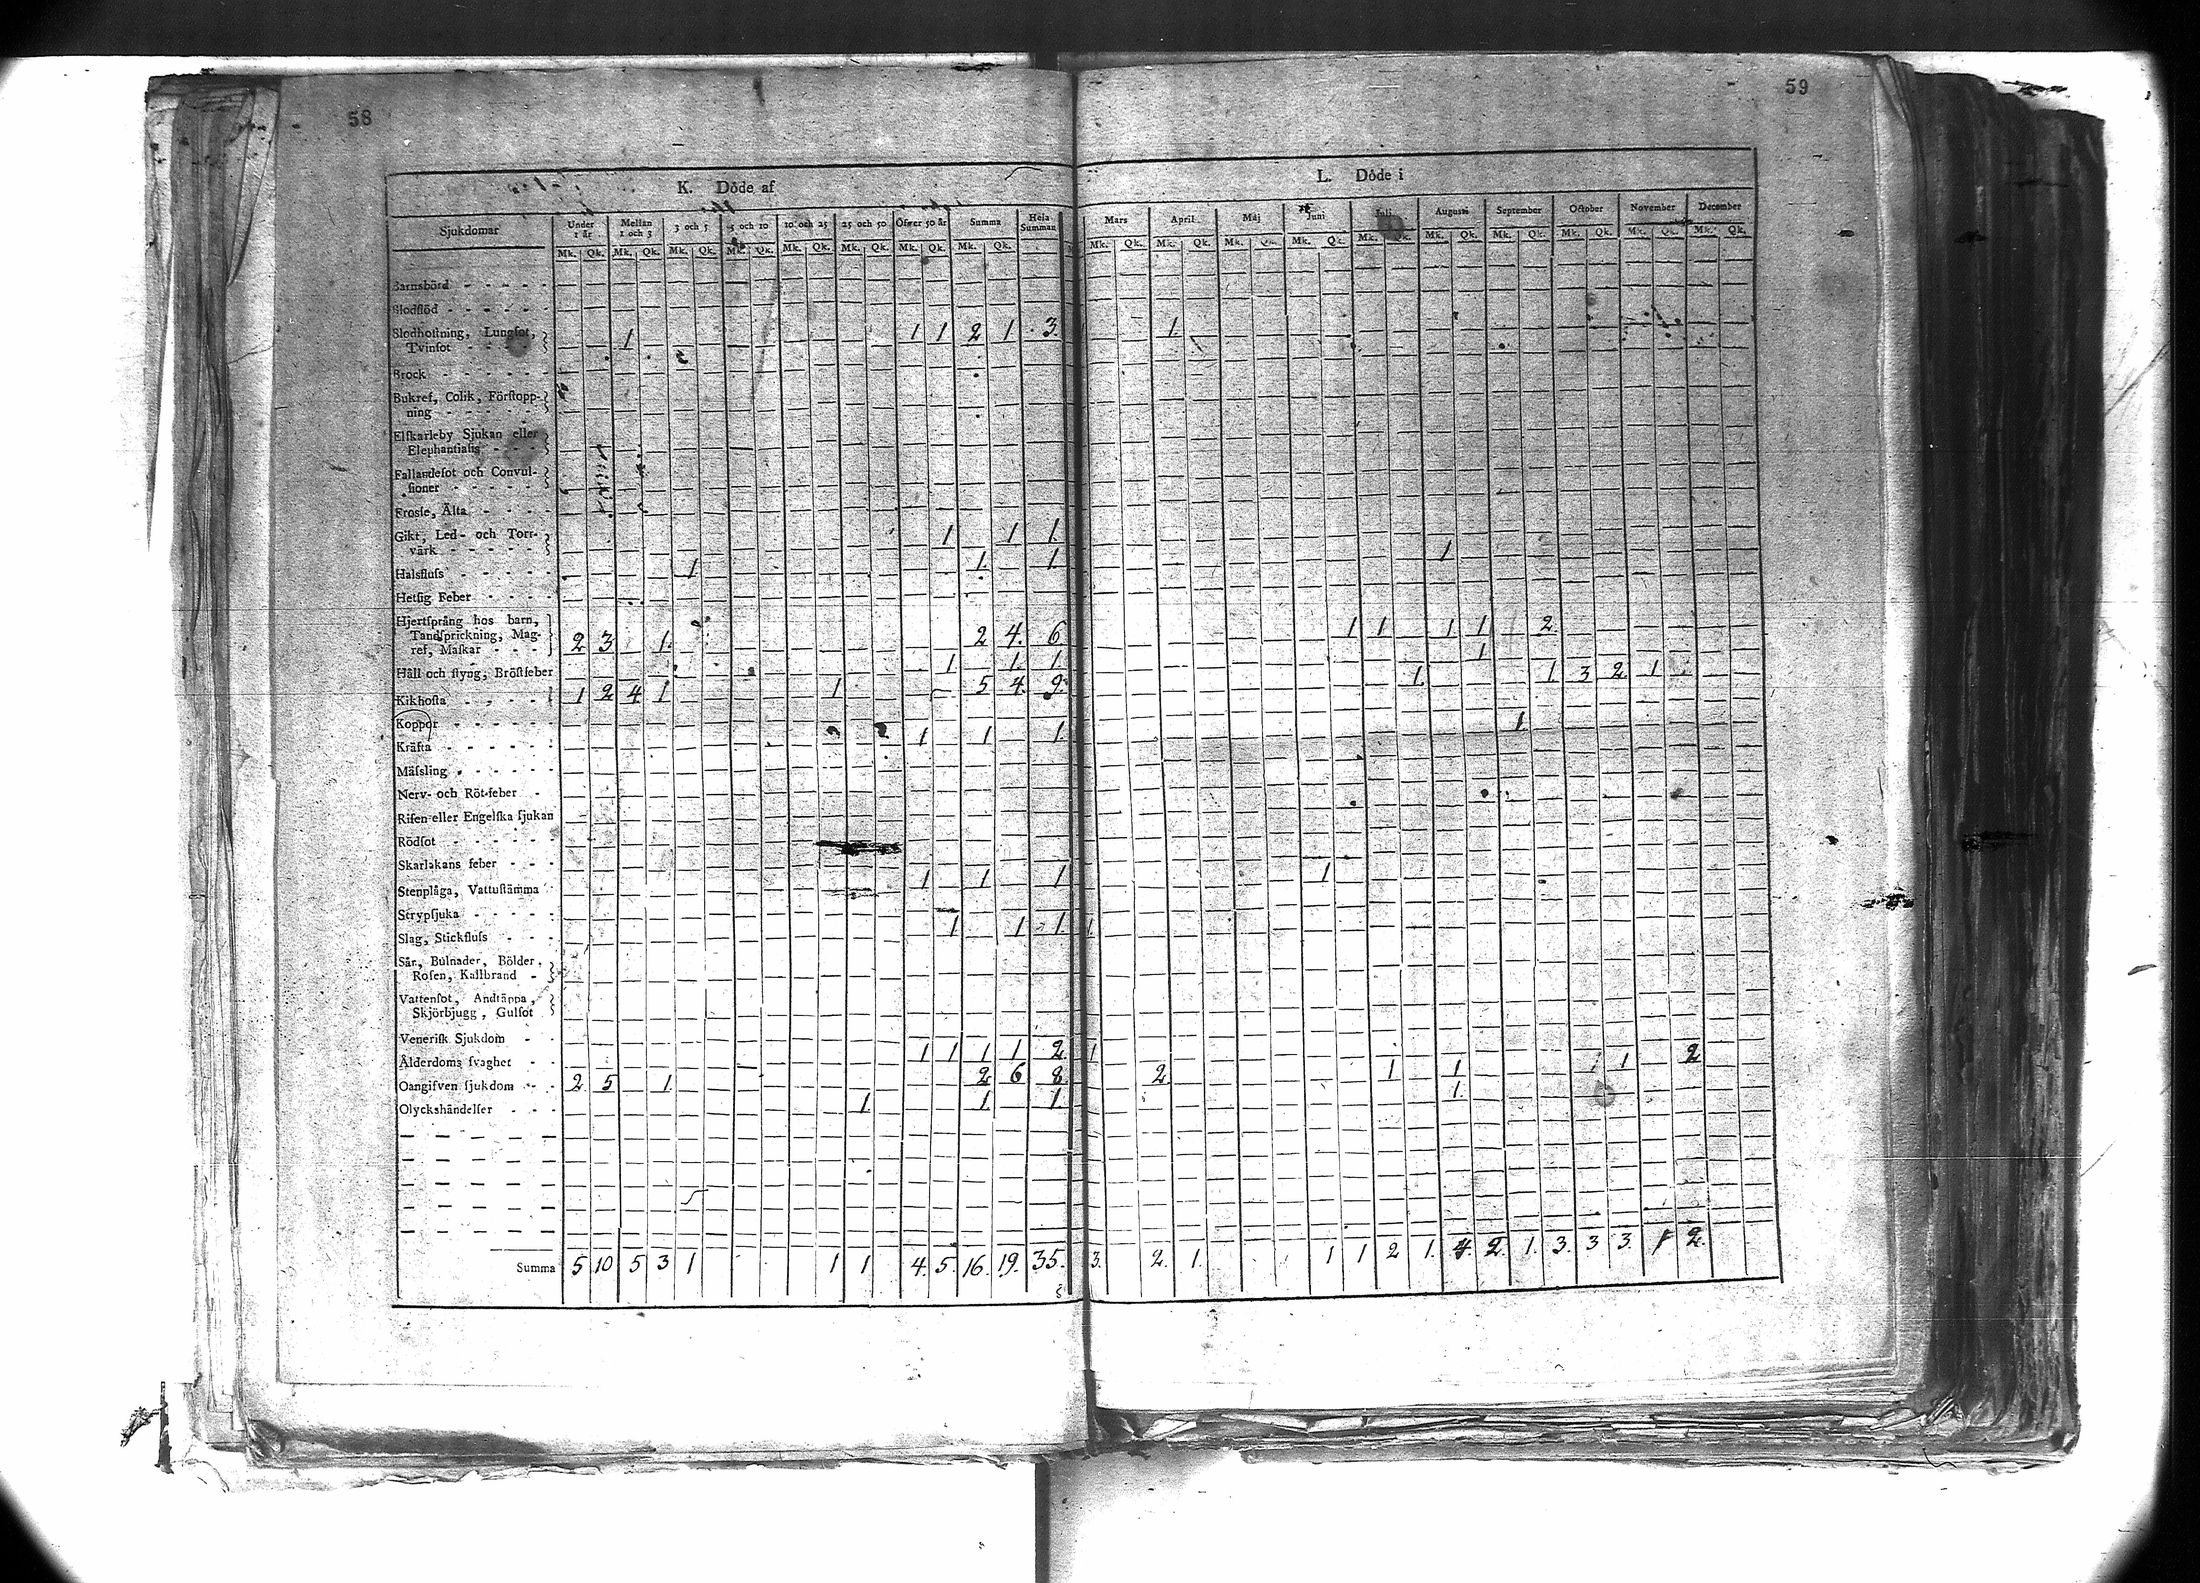 58
59
K. Döde af
L. Döde i
Sjukdomar Under 1 år Mellan 1 och 3 3 och 5 5 och 10 10 och 25 25 och 50 Öfver 50 år Summa Hela Summan Mars April Maj Juni Juli Augusti September October November December
Mk. Qk. Mk. Qk. Mk. Qk. Mk. Qk. Mk. Qk. Mk. Qk. Mk. Qk. Mk. Qk. Mk. Qk. Mk. Qk. Mk. Qk. Mk. Qk. Mk. Qk. Mk. Qk. Mk. Qk. Mk. Qk. Mk. Qk. Mk. Qk.
Barnsbörd
Blodflöd
Blodhoſtning, Lungſot,
Tvinſot 1 1 1 2 1 3. 1.
Brock
Bukref, Colik, Förſtopp-
ning
Elſkarleby Sjukan eller
Elephantiaſis
Fallandeſot och Convul-
ſioner
Froſſe, Älta
Gikt, Led- och Torr-
värk 1 1 1.
Halsfluſs 1 1. 1. 1
Hetſig Feber
Hjertſprång hos barn,
Tandſprickning, Mag-
ref, Maſkar 2 3 1. 2 4. 6 1 1 1 1 2.
Håll och ſtyng, Bröſtfeber 1 1 1 1
Kikhoſta 1 2 4 1 1 5 4. 9. 1. 1 3 2 1
Koppor
Kräfta 1 1 1. 1
Mäſsling
Nerv- och Röt-feber
Riſen eller Engelſka ſjukan
Rödſot
Skarlakans feber
Stenplåga, Vattuſtämma 1 1 1 1
Strypſjuka
Slag, Stickfluſs 1 1 1. 1.
Sår, Bulnader, Bölder,
Roſen, Kallbrand
Vattenſot, Andtäppa,
Skjörbjugg, Gulſot
Veneriſk Sjukdom
Ålderdoms ſvaghet 1 1 1 1 2. 1
Oangifven ſjukdom 2 5 1. 2 6 8. 2. 1 1 1 2
Olyckshändelſer 1. 1. 1. 1.
Summa 5 10 5 3 1 1 1 4. 5. 16. 19. 35. 3. 2. 1. 1 1 2 1. 4. 2. 1. 3. 3 3. 1 2.